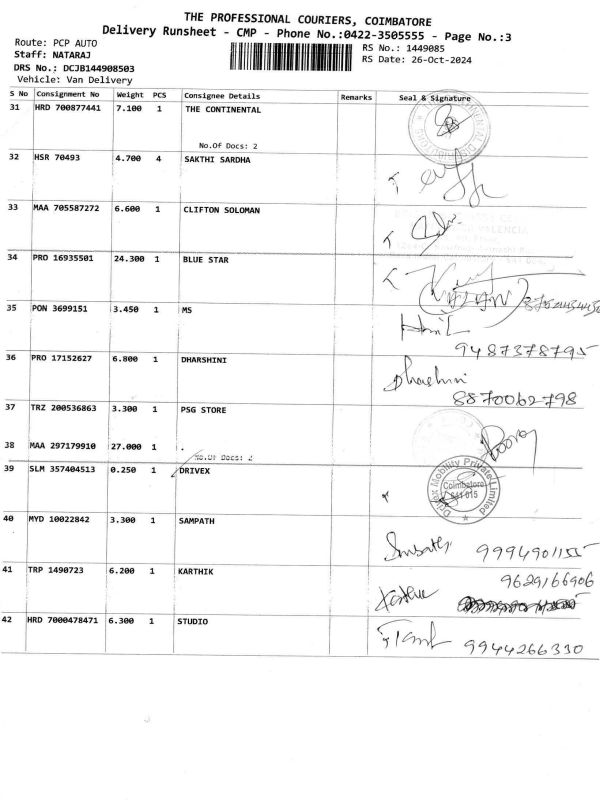 THE PROFESSIONAL COURIERS, COIMBATORE
Delivery Runsheet - CMP - Phone No.:0422-3505555 - Page No.:3
Route: PCP AUTO
RS No.: 1449085
Staff: NATARAJ
RS Date: 26-Oct-2024
DRS No.: DCJB144908503
Vehicle: Van Delivery
S No Consignment No Weight PCS Consignee Details Remarks Seal & Signature
31 HRD 700877441 7.100 1 THE CONTINENTAL
No.Of Docs: 2
32 HSR 70493 4.700 4 SAKTHI SARDHA
33 MAA 705587272 6.600 1 CLIFTON SOLOMAN
34 PRO 16935501 24.300 1 BLUE STAR
35 PON 3699151 3.450 1 MS
9487378795
36 PRO 17152627 6.800 1 DHARSHINI
Dharshini
8870062798
37 TRZ 200536863 3.300 1 PSG STORE
38 MAA 297179910 27.000 1
No.Of Docs: 2
39 SLM 357404513 0.250 1 DRIVEX
Drivex Mobility Private Limited
Coimbatore
641 015
40 MYD 10022842 3.300 1 SAMPATH
9994901155
41 TRP 1490723 6.200 1 KARTHIK
9629166906
42 HRD 7000478471 6.300 1 STUDIO
9944266330